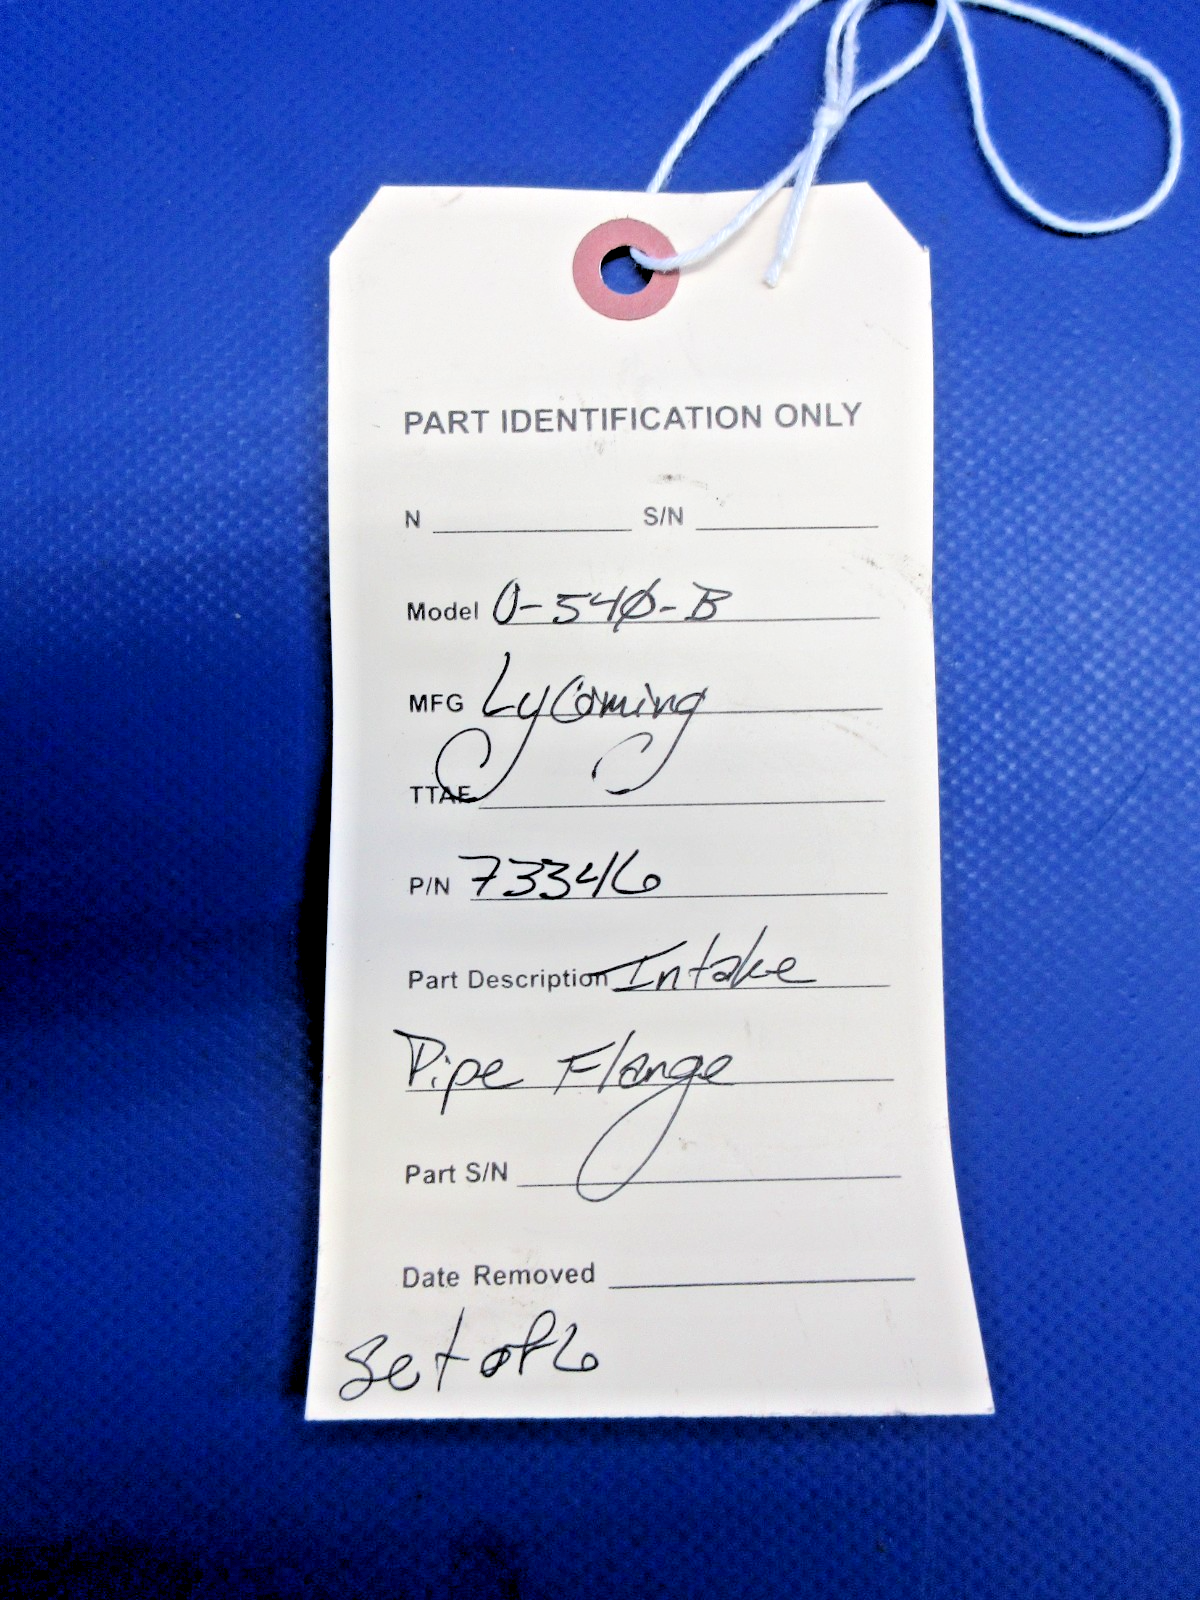 PART IDENTIFICATION ONLY
N S/N
Model O-540-B
MFG Lycoming
TTAF
P/N 73346
Part Description Intake
Pipe Flange
Part S/N
Date Removed
Set of 6